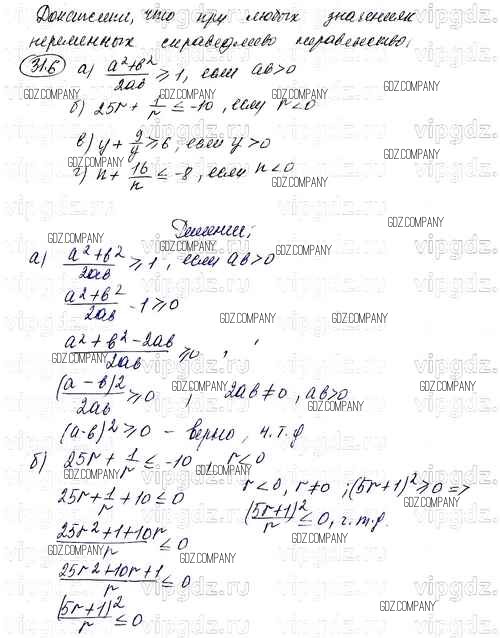 Докажите, что при любых значениях
переменных справедливо неравенство:
316 а) (a²+b²)/(2ab) ≥ 1, если ab>0
б) 25r + 1/r ≤ -10, если r<0
в) y + 9/y ≥ 6, если y>0
г) n + 16/n ≤ -8, если n<0
Решение:
а) (a²+b²)/(2ab) ≥ 1, если ab>0
(a²+b²)/(2ab) - 1 ≥ 0
(a²+b²-2ab)/(2ab) ≥ 0,
(a-b)²/(2ab) ≥ 0, 2ab≠0, ab>0
(a-b)² ≥ 0 - верно, ч.т.д
б) 25r + 1/r ≤ -10, r<0
25r + 1/r + 10 ≤ 0
r<0, r≠0; (5r+1)² ≥ 0 =>
(5r+1)²/r ≤ 0, ч.т.д.
(25r²+1+10r)/r ≤ 0
(25r²+10r+1)/r ≤ 0
(5r+1)²/r ≤ 0
GDZ.COMPANY
vipgdz.ru